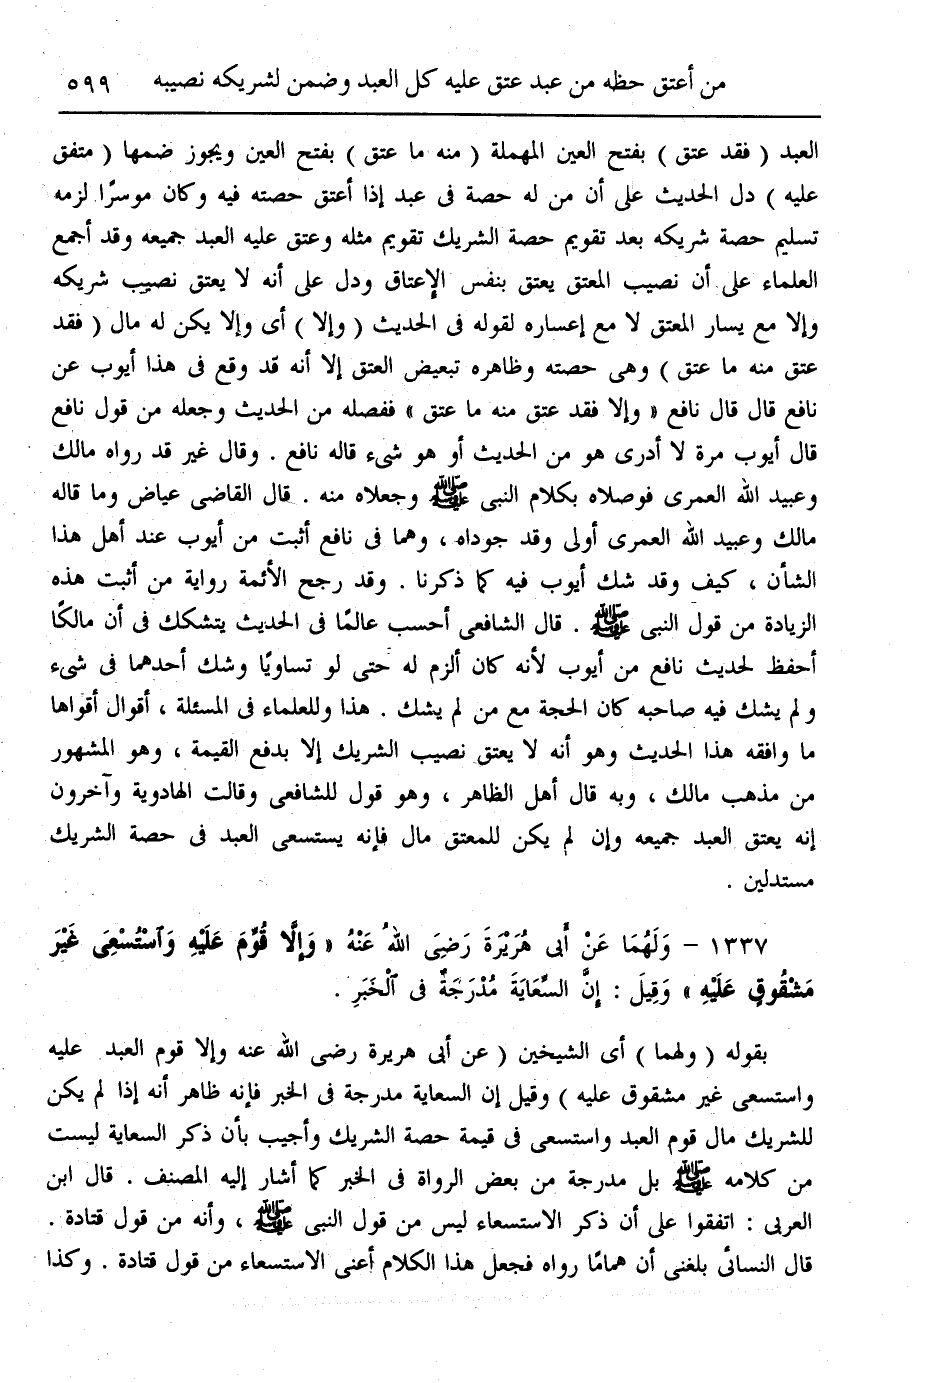 من أعتق حظه من عبد عتق عليه كل العبد وضمن لشريكه نصيبه ٥٩٩
العبد ( فقد عتق ) بفتح العين المهملة ( منه ما عتق ) بفتح العين ويجوز ضمها ( متفق
عليه ) دل الحديث على أن من له حصة فى عبد إذا أعتق حصته فيه وكان موسرًا لزمه
تسليم حصة شريكه بعد تقويم حصة الشريك تقويم مثله وعتق عليه العبد جميعه وقد أجمع
العلماء على أن نصيب المعتق يعتق بنفس الإعتاق ودل على أنه لا يعتق نصيب شريكه
وإلا مع يسار المعتق لا مع إعساره لقوله فى الحديث ( وإلا ) أى وإلا يكن له مال ( فقد
عتق منه ما عتق ) وهى حصته وظاهره تبعيض العتق إلا أنه قد وقع فى هذا أيوب عن
نافع قال قال نافع « وإلا فقد عتق منه ما عتق » ففصله من الحديث وجعله من قول نافع
قال أيوب مرة لا أدرى هو من الحديث أو هو شىء قاله نافع . وقال غير قد رواه مالك
وعبيد الله العمرى فوصلاه بكلام النبى ﷺ وجعلاه منه . قال القاضى عياض وما قاله
مالك وعبيد الله العمرى أولى وقد جوداه ، وهما فى نافع أثبت من أيوب عند أهل هذا
الشأن ، كيف وقد شك أيوب فيه كما ذكرنا . وقد رجح الأئمة رواية من أثبت هذه
الزيادة من قول النبى ﷺ . قال الشافعى أحسب عالمًا فى الحديث يتشكك فى أن مالكًا
أحفظ لحديث نافع من أيوب لأنه كان ألزم له حتى لو تساويًا وشك أحدهما فى شىء
ولم يشك فيه صاحبه كان الحجة مع من لم يشك . هذا وللعلماء فى المسئلة ، أقوال أقواها
ما وافقه هذا الحديث وهو أنه لا يعتق نصيب الشريك إلا بدفع القيمة ، وهو المشهور
من مذهب مالك ، وبه قال أهل الظاهر ، وهو قول للشافعى وقالت الهادوية وآخرون
إنه يعتق العبد جميعه وإن لم يكن للمعتق مال فإنه يستسعى العبد فى حصة الشريك
مستدلين .
١٣٣٧ – وَلَهُمَا عَنْ أَبى هُرَيْرَةَ رَضِىَ اللهُ عَنْهُ « وَإِلَّا قُوِّمَ عَلَيْهِ وَٱسْتُسْعِىَ غَيْرَ
مَشْقُوقٍ عَلَيْهِ » وَقِيلَ : إِنَّ السِّعَايَةَ مُدْرَجَةٌ فى ٱلْخَبَرِ .
بقوله ( ولهما ) أى الشيخين ( عن أبى هريرة رضى الله عنه وإلا قوم العبد عليه
واستسعى غير مشقوق عليه ) وقيل إن السعاية مدرجة فى الخبر فإنه ظاهر أنه إذا لم يكن
للشريك مال قوم العبد واستسعى فى قيمة حصة الشريك وأجيب بأن ذكر السعاية ليست
من كلامه ﷺ بل مدرجة من بعض الرواة فى الخبر كما أشار إليه المصنف . قال ابن
العربى : اتفقوا على أن ذكر الاستسعاء ليس من قول النبى ﷺ ، وأنه من قول قتادة .
قال النسائى بلغنى أن همامًا رواه فجعل هذا الكلام أعنى الاستسعاء من قول قتادة . وكذا